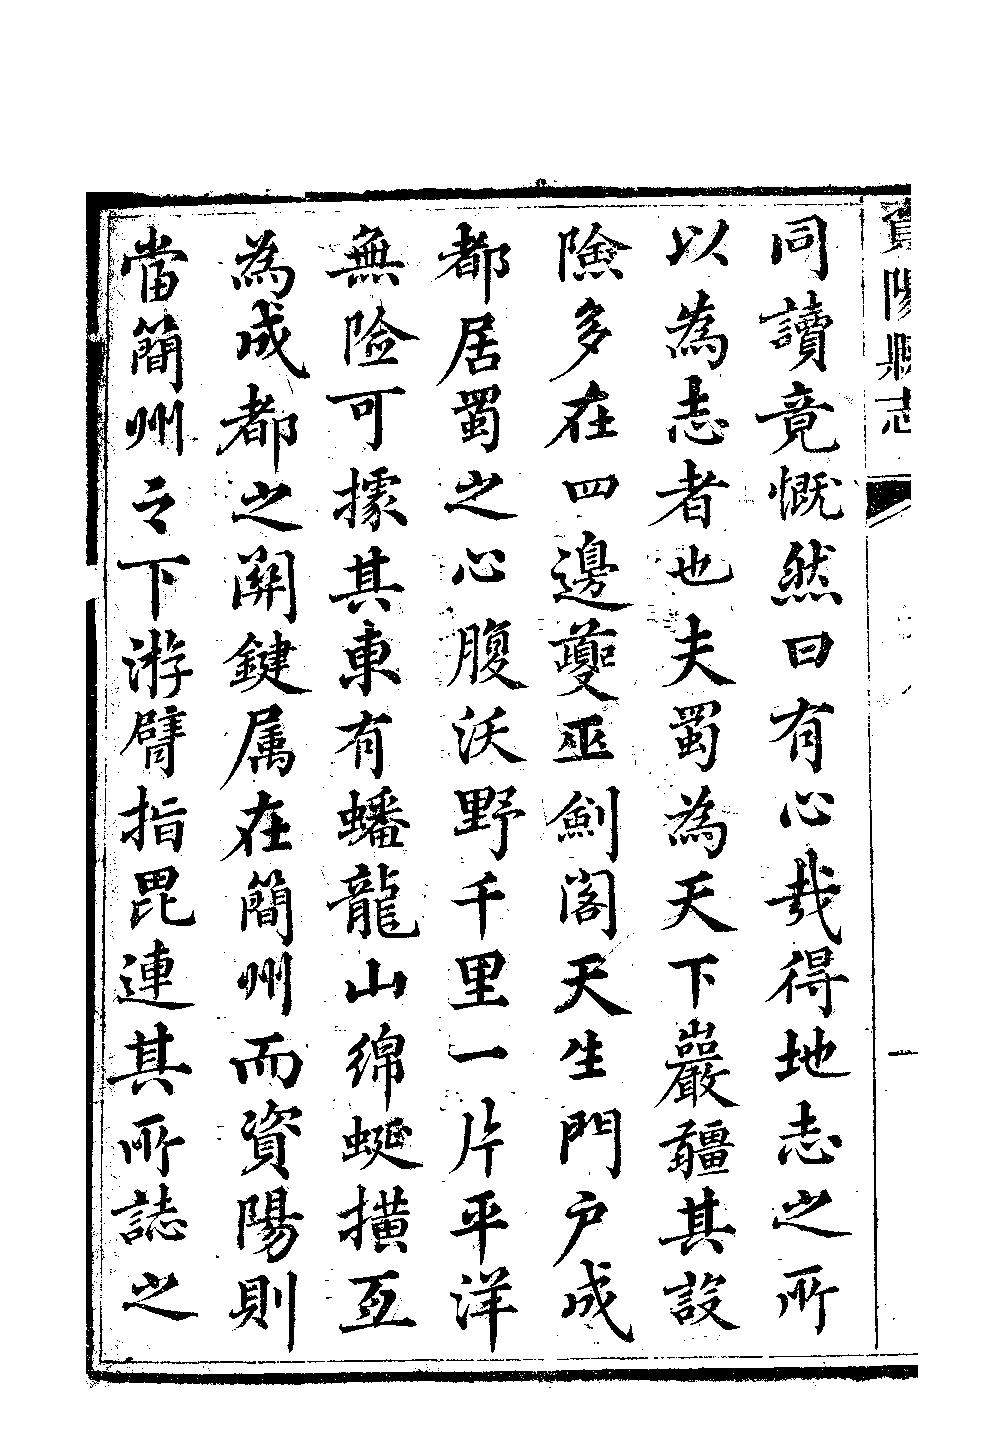 資陽縣志
一
同讀竟慨然曰有心哉得地志之所
以為志者也夫蜀為天下巖疆其設
險多在四邊夔巫劍閣天生門户成
都居蜀之心腹沃野千里一片平洋
無險可據其東有蟠龍山綿蜒橫亙
為成都之關鍵属在簡州而資陽則
當簡州之下游臂指毘連其所誌之